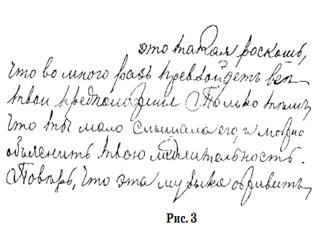 это такая роскошь,
что во много разъ превзойдетъ всѣ
твои предположенія. Только тѣмъ,
что ты мало слышала его, и можно
объяснить твою медлительность.
Повѣрь, что эта музыка
Рис. 3